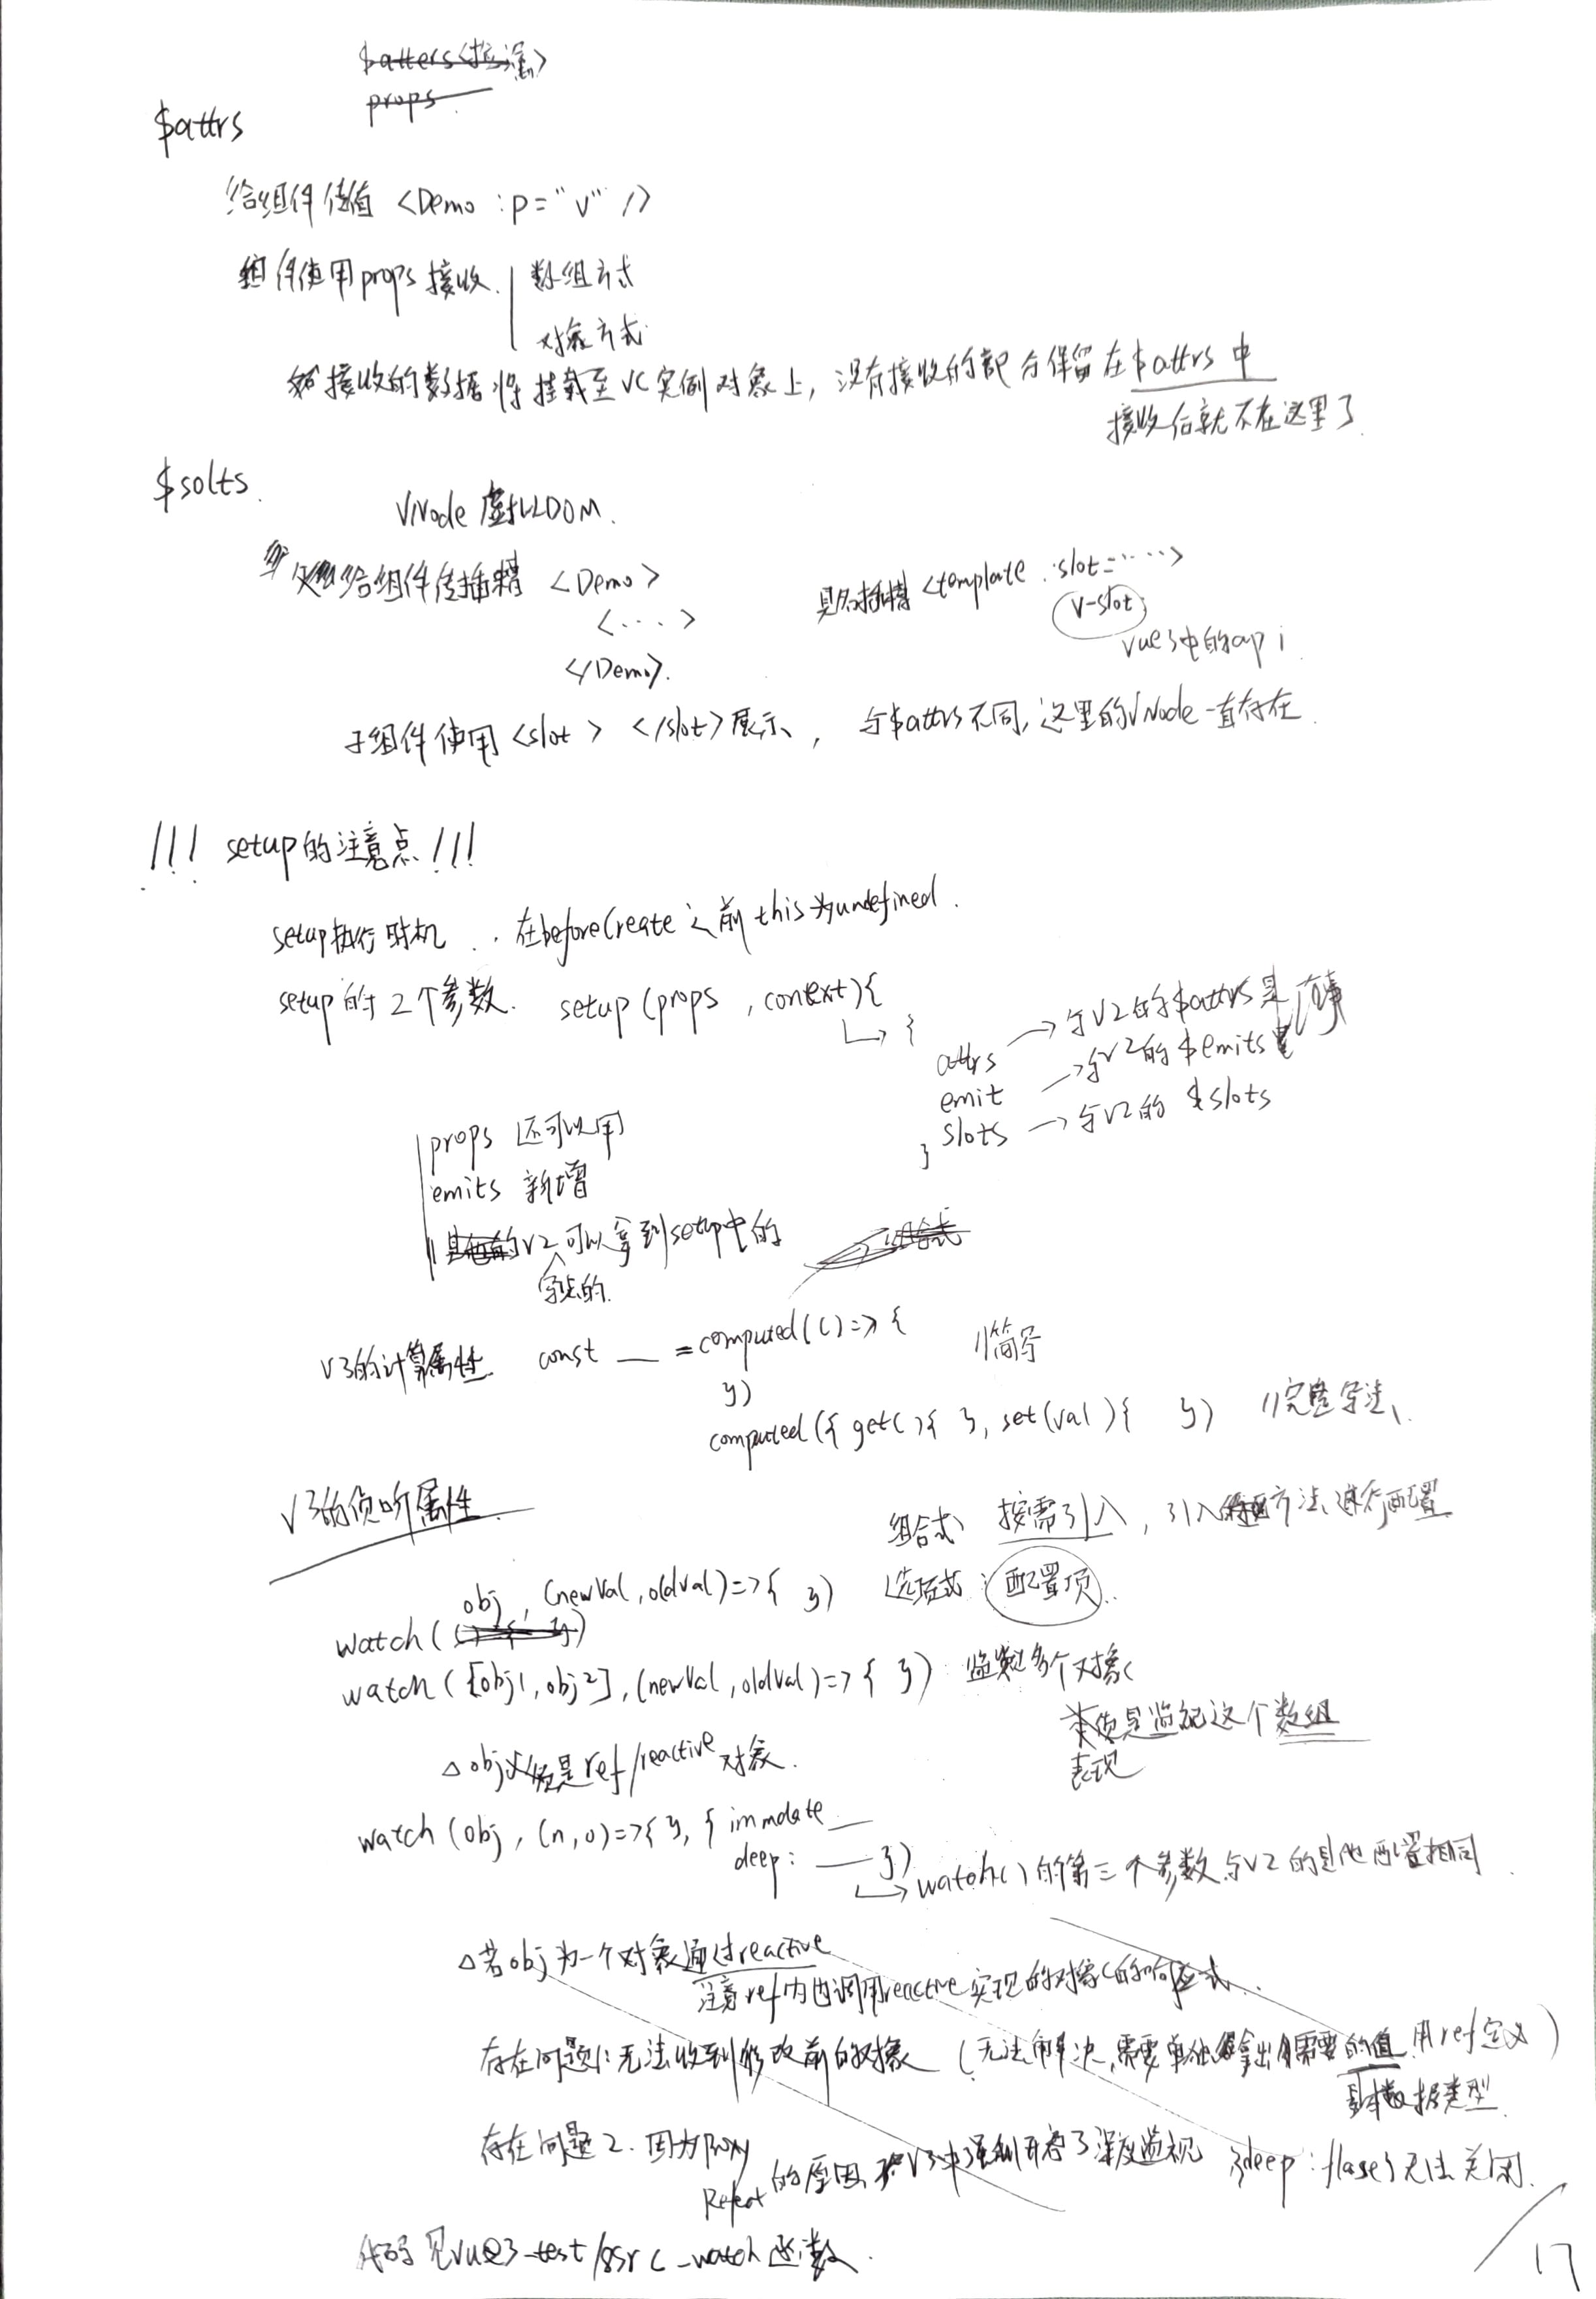 $atters<>
props
$attrs
给组件传值 <Demo :p="v" />
组件使用props接收. 数组方式
对象方式
接收的数据将挂载至VC实例对象上, 没有接收的部分保留在$attrs中
接收后就不在这里了
$solts.
VNode 虚拟DOM.
给组件传插槽 <Demo>
<....>
</Demo>.
具名插槽 <template :slot=.....>
v-slot
vue3中的api
子组件使用<slot> </slot>展示, 与$attrs不同,这里的VNode一直存在.
!!! setup的注意点!!!
setup执行时机 .. 在beforeCreate之前 this为undefined.
setup的2个参数. setup(props , context){
{
attrs → 与V2的$attrs是
emit → 与V2的$emits
slots → 与V2的 $slots
}
props 还可以用
emits 新增
V2可以拿到setup中的
写法的.
组合式
V3的计算属性. const __ = computed(()=>{ //简写
})
computed({ get(){ }, set(val){ }) //完整写法、
V3的侦听属性
组合式 按需引入, 引入方法、进行配置
选项式: 配置项..
watch( obj, (newVal,oldVal)=>{ })
watch([obj1,obj2],(newVal,oldVal)=>{ }) 监视多个对象
本质是监视这个数组
表现
△obj必须是ref/reactive对象.
watch(obj, (n,o)=>{ }, { immdate__
deep: __ })
↳watch()的第三个参数与V2的其他配置相同.
△若obj为一个对象通过reactive
注意ref内也调用reactive实现的对象的响应式.
存在问题1: 无法收到修改前的对象 (无法解决,需要单独拿出需要的值.用ref定义)
基本数据类型
存在问题2. 因为Proxy
Refect 的原因, V3中强制开启了深度监视 {deep:flase}无法关闭.
代码见vue3-test/src-watch函数.
17